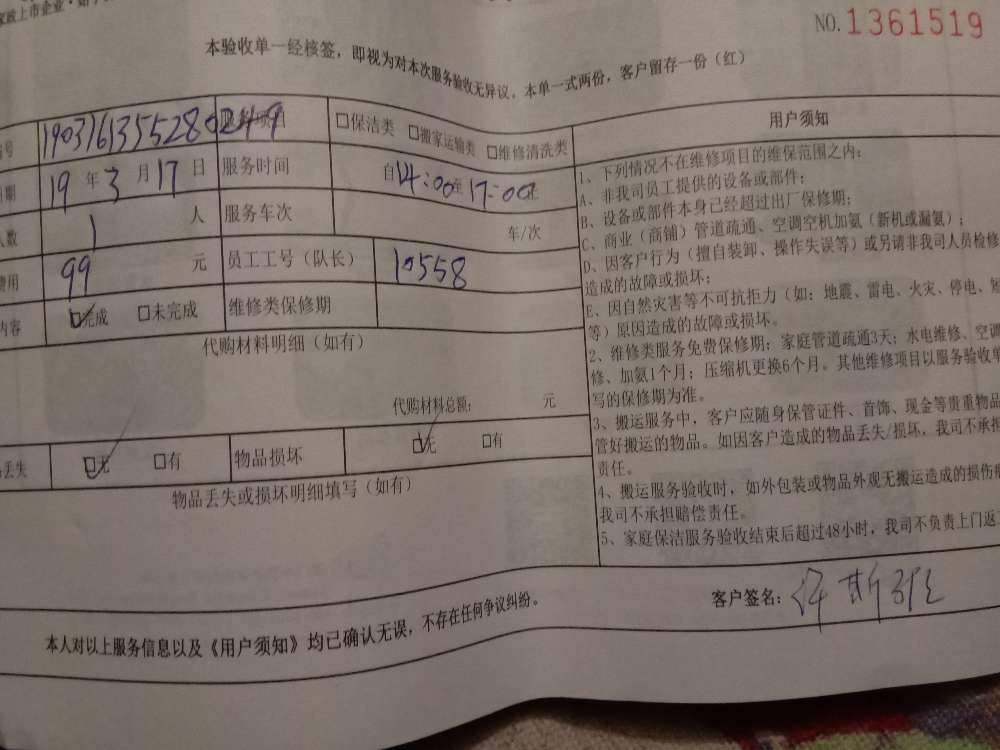 家政上市企业
NO.1361519
本验收单一经核签，即视为对本次服务验收无异议。本单一式两份，客户留存一份（红）
号 190316135528 249 □保洁类 □搬家运输类 □维修清洗类
期 19年3月17日 服务时间 自14:00至17:00止
人数 1 人 服务车次 车/次
费用 99 元 员工工号（队长） 10558
内容 ☑完成 □未完成 维修类保修期
代购材料明细（如有）
代购材料总额： 元
丢失 ☑无 □有 物品损坏 ☑无 □有
物品丢失或损坏明细填写（如有）
用户须知
1、下列情况不在维修项目的维保范围之内：
A、非我司员工提供的设备或部件；
B、设备或部件本身已经超过出厂保修期；
C、商业（商铺）管道疏通、空调空机加氨（新机或漏氨）；
D、因客户行为（擅自装卸、操作失误等）或另请非我司人员检修
造成的故障或损坏；
E、因自然灾害等不可抗拒力（如：地震、雷电、火灾、停电、
等）原因造成的故障或损坏。
2、维修类服务免费保修期：家庭管道疏通3天；水电维修、空调
修、加氨1个月；压缩机更换6个月。其他维修项目以服务验收单
写的保修期为准。
3、搬运服务中，客户应随身保管证件、首饰、现金等贵重物品
管好搬运的物品。如因客户造成的物品丢失/损坏，我司不承担
责任。
4、搬运服务验收时，如外包装或物品外观无搬运造成的损伤
我司不承担赔偿责任。
5、家庭保洁服务验收结束后超过48小时，我司不负责上门返
本人对以上服务信息以及《用户须知》均已确认无误，不存在任何争议纠纷。
客户签名：